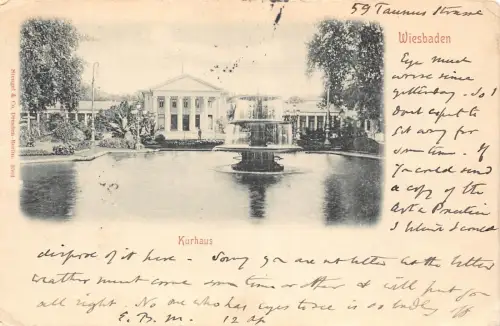 59 Taunus Strasse
Wiesbaden
Eye much
worse since
yesterday. So I
don't expect to
get away for
some time. If
you could send
a copy of the
Art & Practice
I believe I could
dispose of it here. Sorry you are not better but the better
weather must come some time or other & will put you
all right. No one who has eyes to see is so badly off
E. B. M. 12 Ap
Kurhaus
Stengel & Co. Dresden-Berlin.